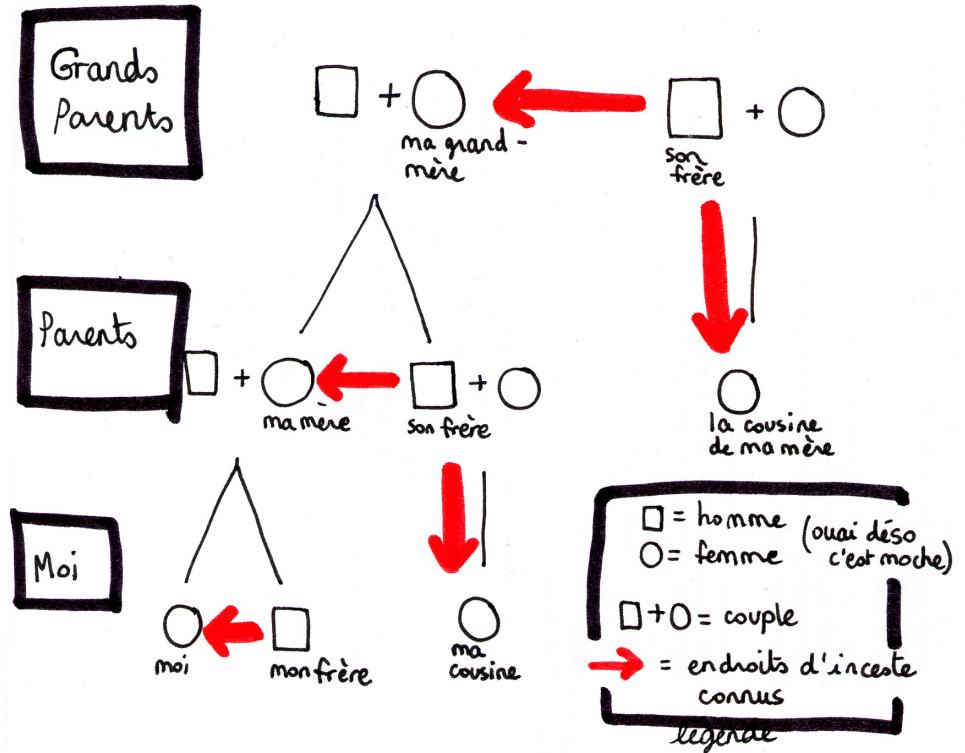 Grands
Parents
+
ma grand-
mère
+
son
frère
Parents
+
ma mère
+
son frère
la cousine
de ma mère
Moi
moi
mon frère
ma
cousine
= homme
= femme
(ouai déso
c'est moche)
+ = couple
= endroits d'inceste
connus
légende